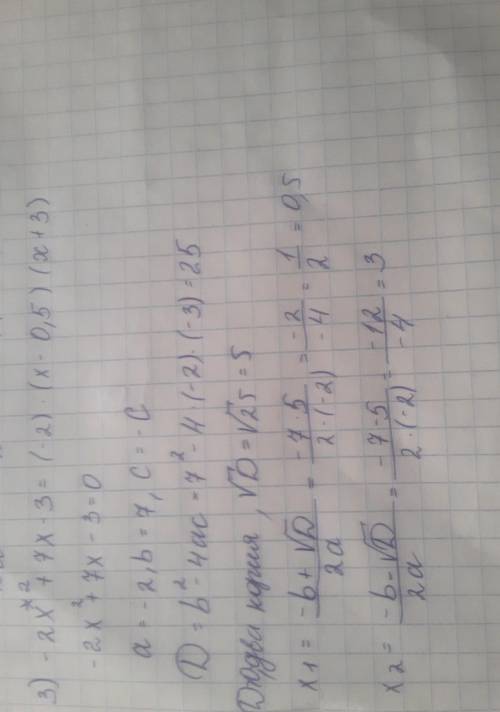 3) -2x² + 7x - 3 = (-2) · (x - 0,5) (x + 3)
-2x² + 7x - 3 = 0
a = -2, b = 7, c = -C
D = b² - 4ac = 7² - 4 · (-2) · (-3) = 25
корня, √D = √25 = 5
x1 = (-b + √D)/(2a) = (-7 · 5)/(2 · (-2)) = (-2)/(-4) = 1/2 = 0,5
x2 = (-b - √D)/(2a) = (-7 - 5)/(2 · (-2)) = (-12)/(-4) = 3